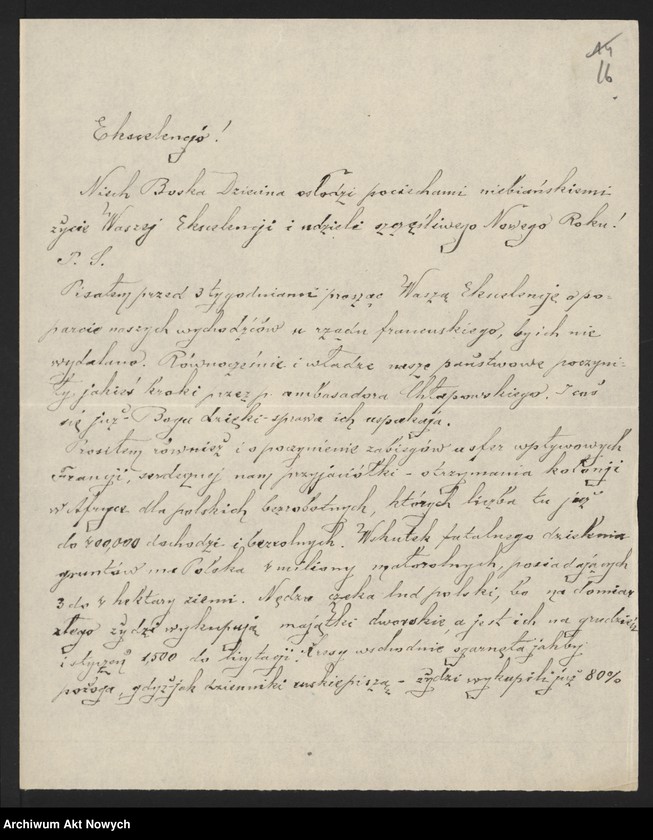 16
Ekscelencjo!
Niech Boska Dziecina osłodzi pociechami niebiańskiemi
życie Waszej Ekscelencji i udzieli szczęśliwego Nowego Roku!
P. S.
Pisałem przed 3 tygodniami prosząc Waszą Ekscelencję o po-
parcie naszych wychodźców u rządu francuskiego, by ich nie
wydalano. Równocześnie i władze nasze państwowe poczyni-
ły jakieś kroki przez p. ambasadora Chłapowskiego. I coś
się już - Bogu dzięki - sprawa ich uspakaja.
Prosiłem również i o poczynienie zabiegów u sfer wpływowych
Francji, serdecznej nam przyjaciółki - otrzymania kolonji
w Afryce dla polskich bezrobotnych, których liczba tu już
do 400,000 dochodzi i bezrolnych. Wskutek fatalnego dzielenia
gruntów ma Polska miliony małorolnych, posiadających
3 do hektary ziemi. Nędza czeka lud polski, bo na domiar
złego żydzi wykupują majątki dworskie, a jest ich na grudzień
i styczeń 1,500 do licytacji! Kresy wschodnie ogarnęła jakby
pożoga, gdyż jak dzienniki ruskie piszą - żydzi wykupili już 80%
Archiwum Akt Nowych